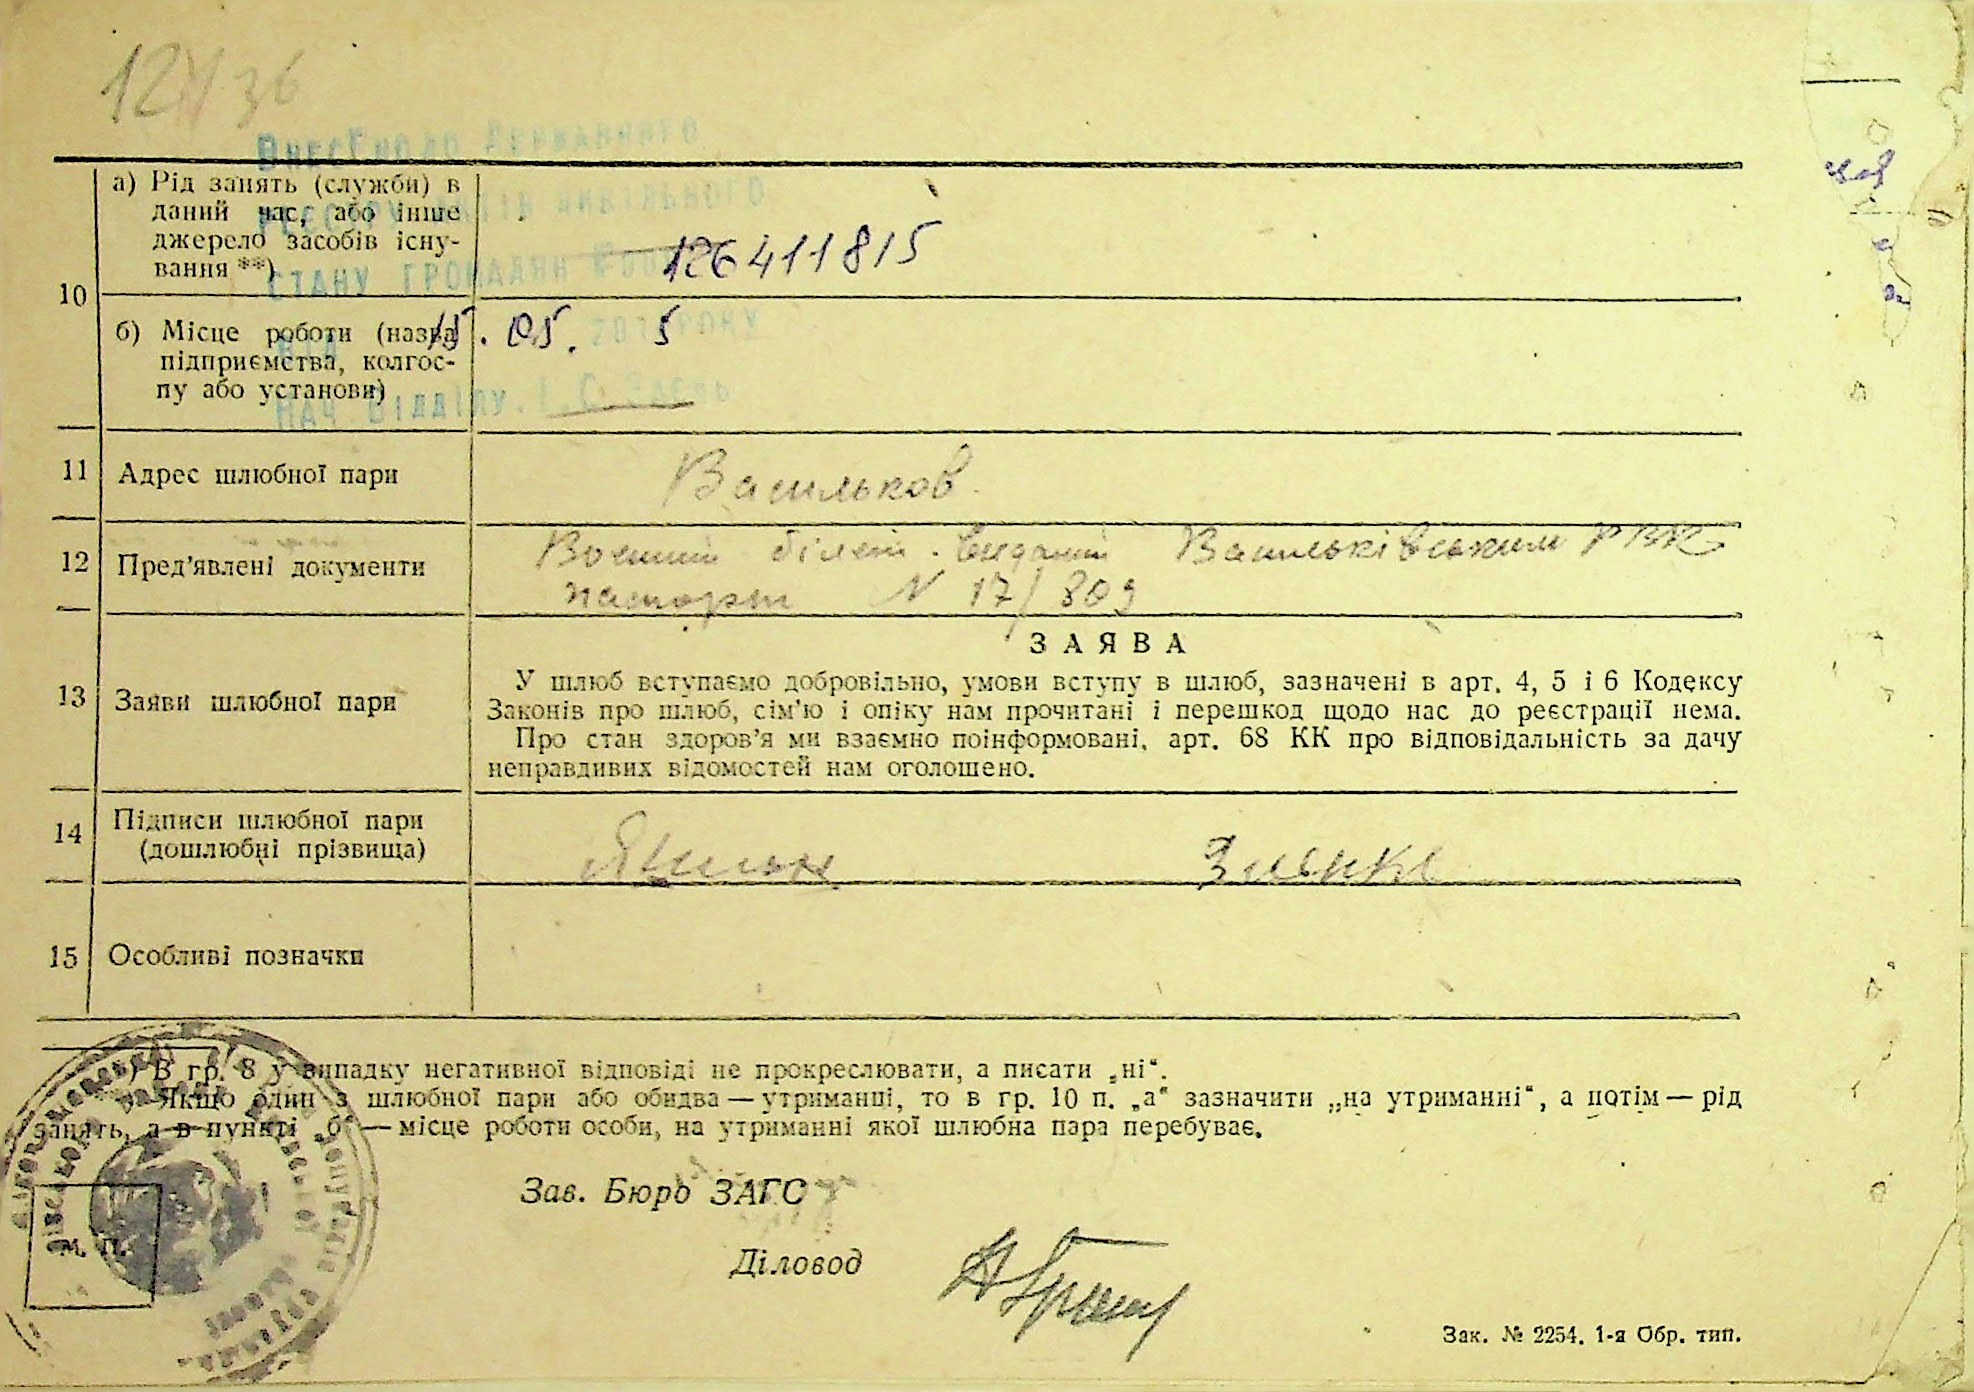 124 36
Внесено до Державного
реєстру актів цивільного
стану громадян
126411815
15.05. 5
201 року
Нач відділу. І.С.
10
а) Рід занять (служби) в
даний час, або інше
джерело засобів існу-
вання **)
б) Місце роботи (назва
підприємства, колгос-
пу або установи)
11 Адрес шлюбної пари Васильков
12 Пред’явлені документи
Воєнний білет. виданий Васильківським РВК
паспорт N 17/809
13 Заяви шлюбної пари
ЗАЯВА
У шлюб вступаємо добровільно, умови вступу в шлюб, зазначені в арт. 4, 5 і 6 Кодексу
Законів про шлюб, сім’ю і опіку нам прочитані і перешкод щодо нас до реєстрації нема.
Про стан здоров’я ми взаємно поінформовані, арт. 68 КК про відповідальність за дачу
неправдивих відомостей нам оголошено.
14 Підписи шлюбної пари
(дошлюбні прізвища)
15 Особливі позначки
*) В гр. 8 у випадку негативної відповіді не прокреслювати, а писати „ні“.
Якщо один з шлюбної пари або обидва — утриманці, то в гр. 10 п. „а“ зазначити „на утриманні“, а потім — рід
занять, а в пункті „б“ — місце роботи особи, на утриманні якої шлюбна пара перебуває.
Зав. Бюро ЗАГС
М. П.
Діловод
Зак. № 2254. 1-я Обр. тип.